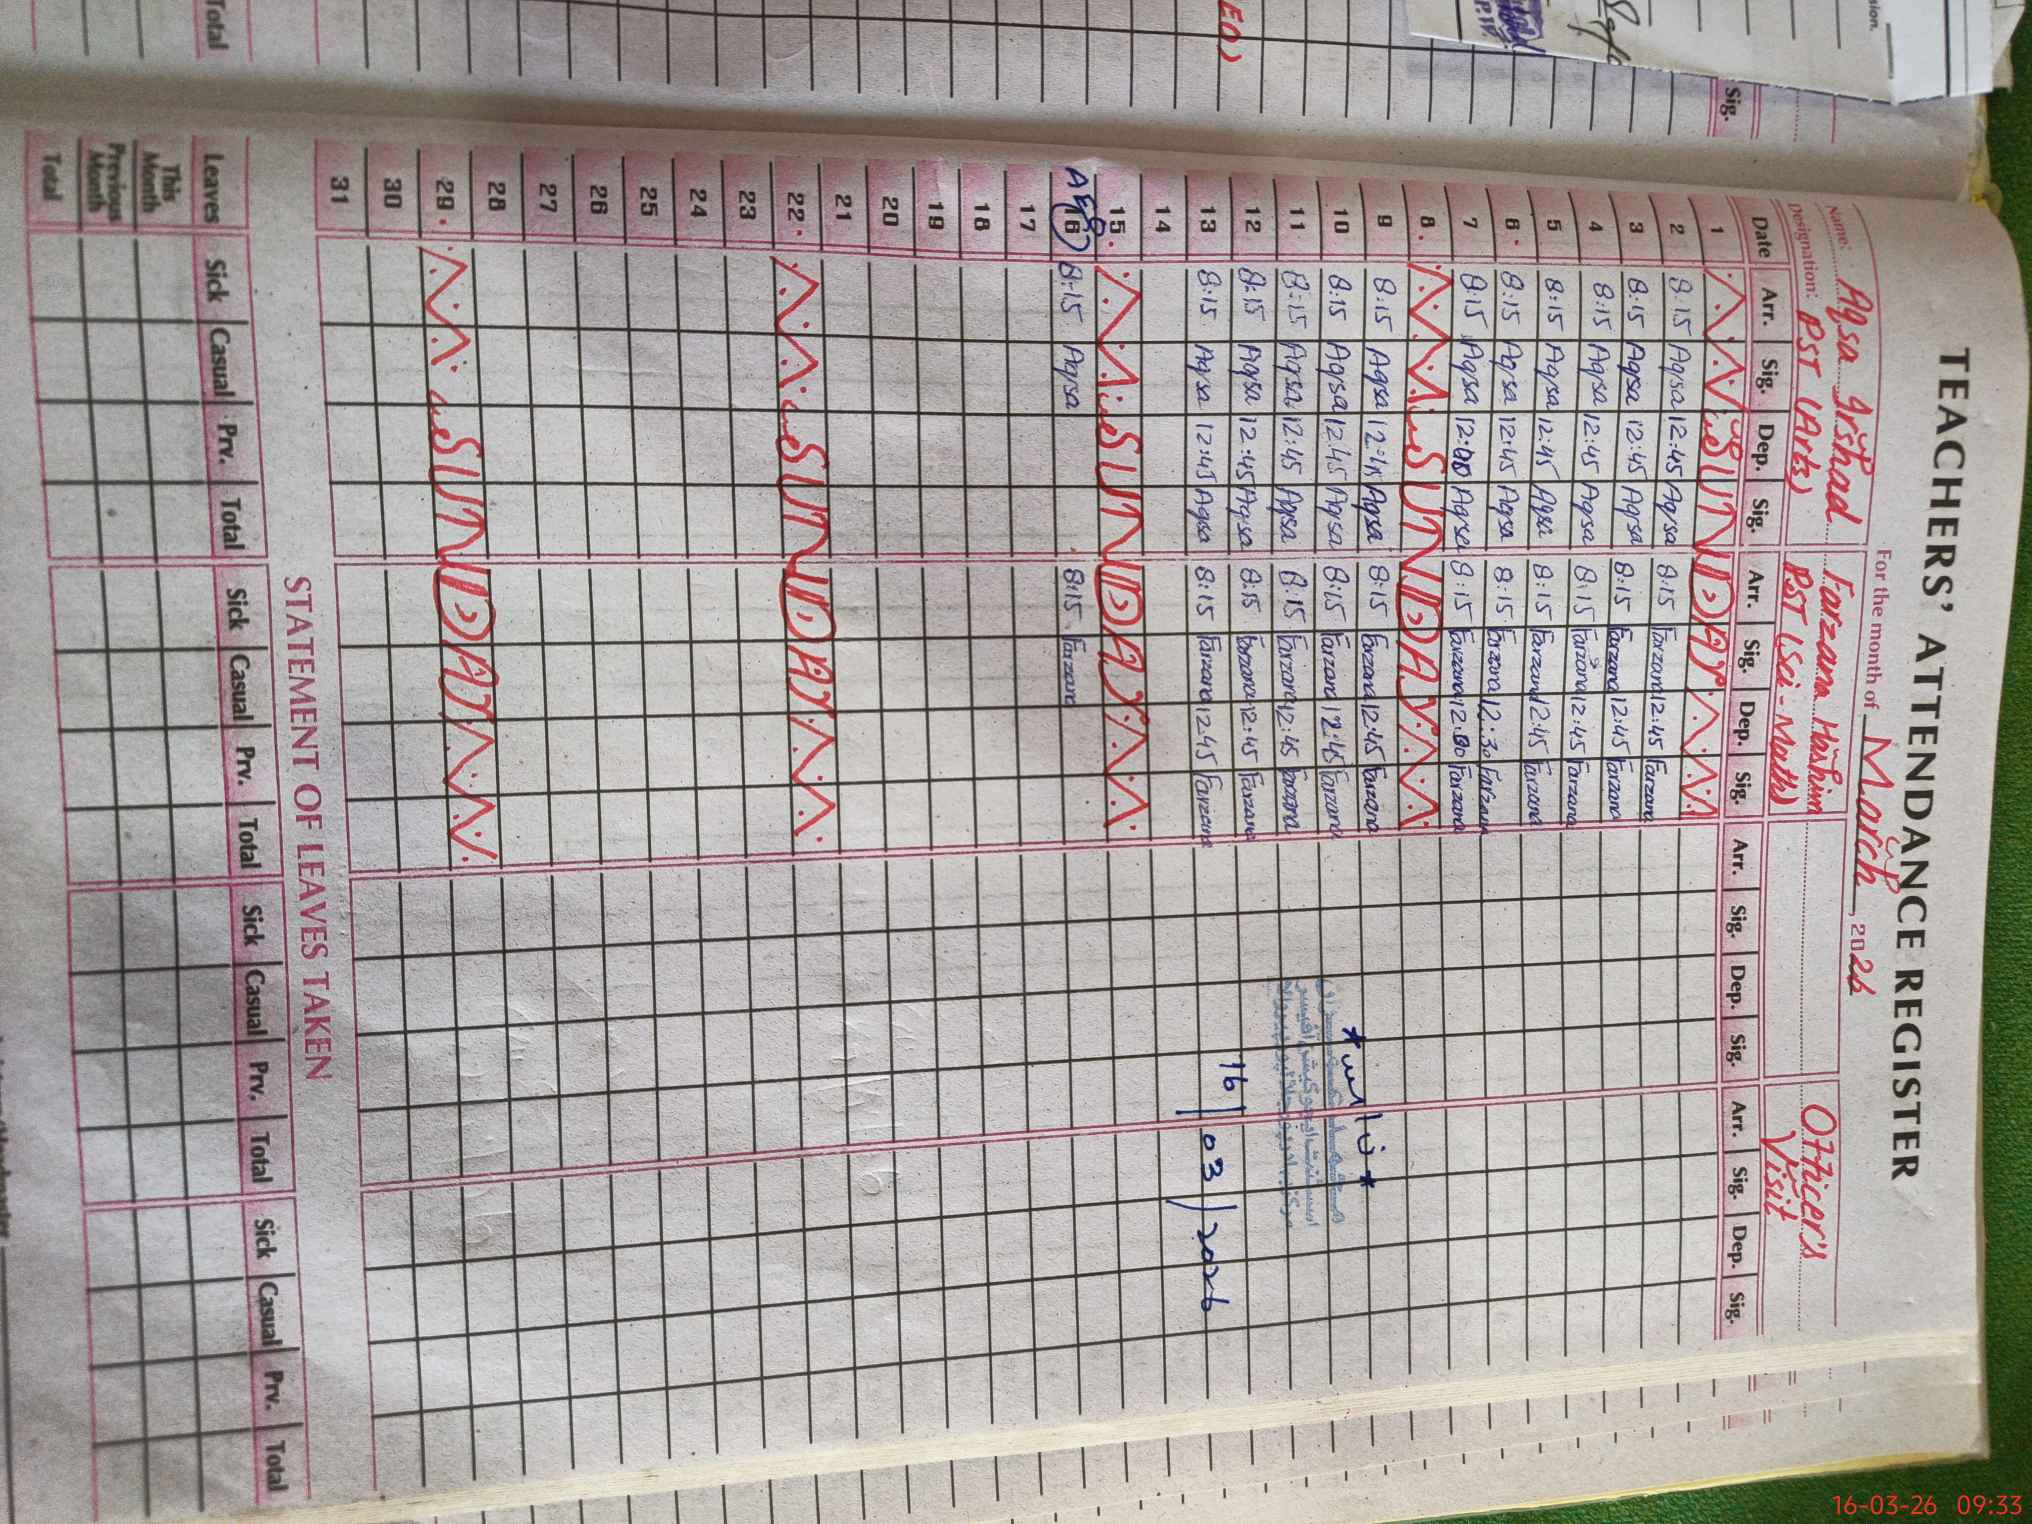 TEACHERS' ATTENDANCE REGISTER
For the month of March, 2026
Name: Aqsa Irshad Farzana Hashim Officer's Visit
Designation: PST (Arts) PST (Sci-Math)
Date Arr. Sig. Dep. Sig. Arr. Sig. Dep. Sig. Arr. Sig. Dep. Sig. Arr. Sig. Dep. Sig.
1 SUNDAY
2 8:15 Aqsa 12:45 Aqsa 8:15 Farzana 12:45 Farzana
3 8:15 Aqsa 12:45 Aqsa 8:15 Farzana 12:45 Farzana
4 8:15 Aqsa 12:45 Aqsa 8:15 Farzana 12:45 Farzana
5 8:15 Aqsa 12:45 Aqsa 8:15 Farzana 12:45 Farzana
6 8:15 Aqsa 12:45 Aqsa 8:15 Farzana 12:30 Farzana
7 8:15 Aqsa 12:00 Aqsa 8:15 Farzana 12:00 Farzana
8 SUNDAY
9 8:15 Aqsa 12:45 Aqsa 8:15 Farzana 12:45 Farzana
10 8:15 Aqsa 12:45 Aqsa 8:15 Farzana 12:45 Farzana
11 8:15 Aqsa 12:45 Aqsa 8:15 Farzana 12:45 Farzana
12 8:15 Aqsa 12:45 Aqsa 8:15 Farzana 12:45 Farzana
13 8:15 Aqsa 12:45 Aqsa 8:15 Farzana 12:45 Farzana
16/03/2026
14
15 SUNDAY
16 8:15 Aqsa 8:15 Farzana
17
18
19
20
21
22 SUNDAY
23
24
25
26
27
28
29 SUNDAY
30
31
STATEMENT OF LEAVES TAKEN
Leaves Sick Casual Prv. Total Sick Casual Prv. Total Sick Casual Prv. Total Sick Casual Prv. Total
This Month
Previous Month
Total
Sig.
Total
16-03-26 09:33